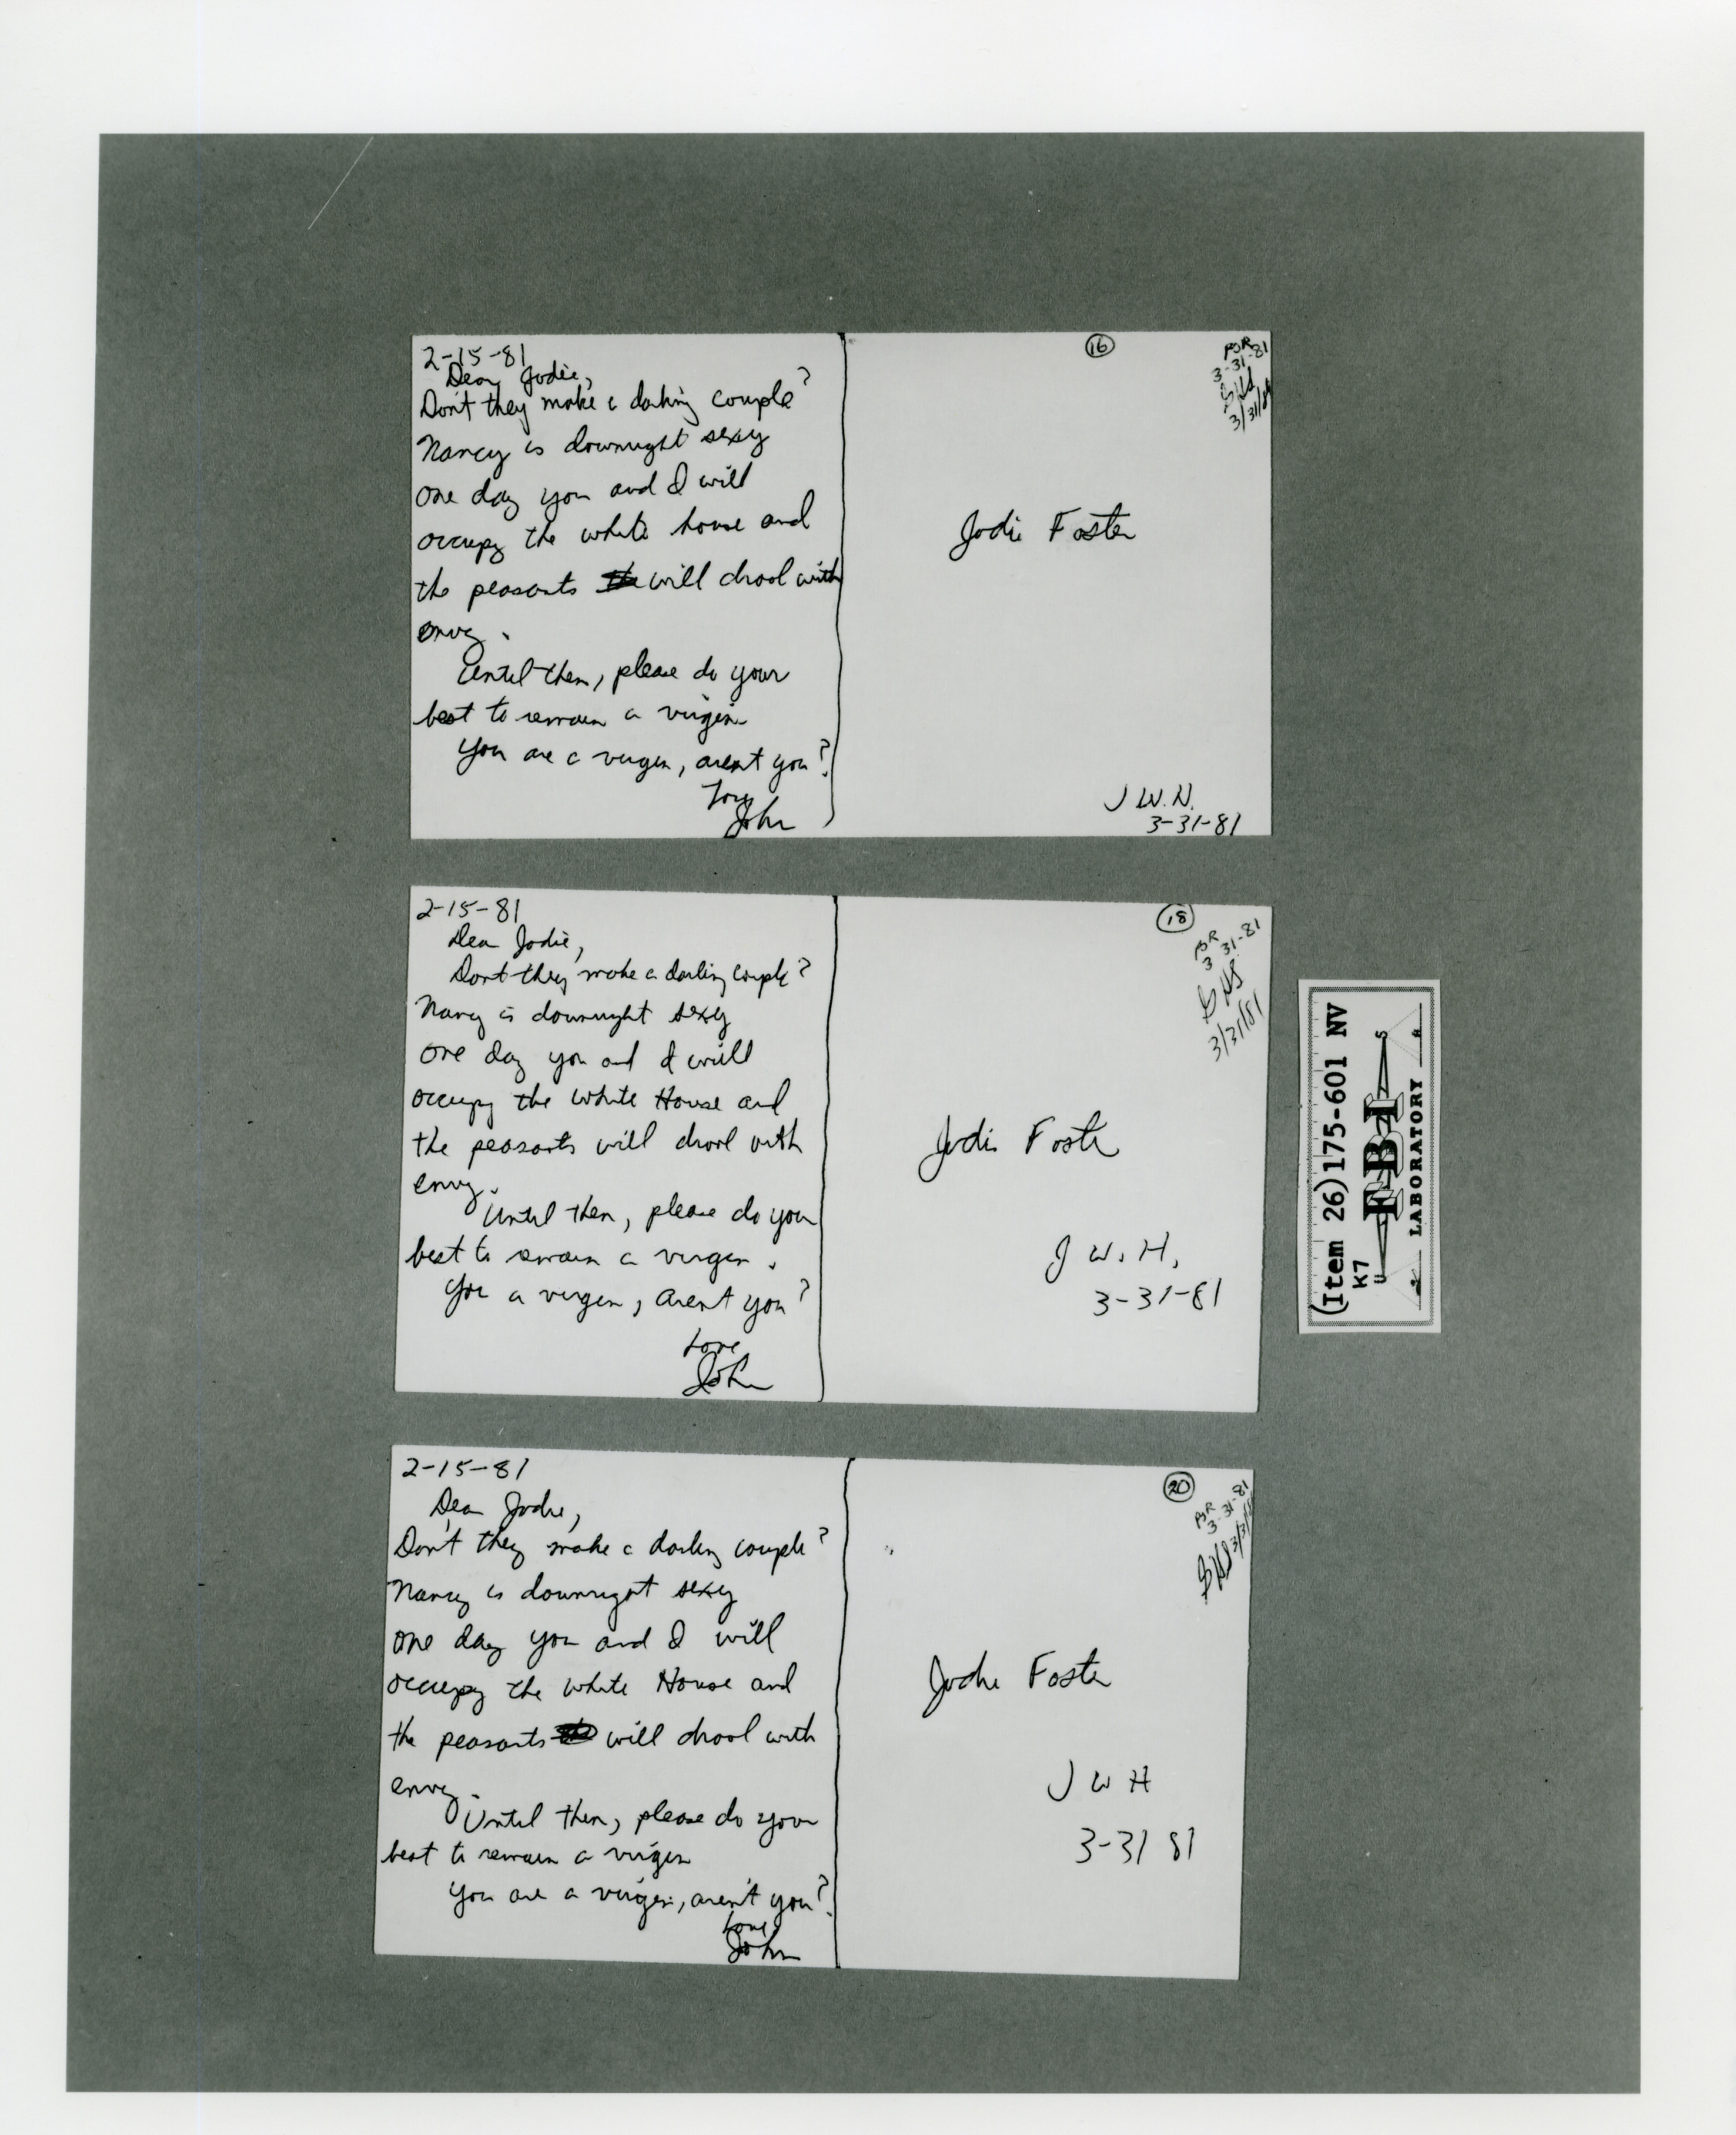 2-15-81
Dear Jodie,
Don't they make a darling couple?
Nancy is downright sexy
one day you and I will
occupy the white house and
the peasants will drool with
envy.
Until then, please do your
best to remain a virgin
You are a virgin, aren't you?
Love
John
16
PJR
3-31-81
3/31/81
Jodie Foster
J W.H.
3-31-81
2-15-81
Dear Jodie,
Don't they make a darling couple?
Nancy is downright sexy
one day you and I will
occupy the White House and
the peasants will drool with
envy.
Until then, please do your
best to remain a virgin.
You a virgin, aren't you?
Love
John
18
PJR
3-31-81
3/31/81
Jodie Foster
J W. H.
3-31-81
2-15-81
Dear Jodie,
Don't they make a darling couple?
Nancy is downright sexy
one day you and I will
occupy the White House and
the peasants will drool with
envy.
Until then, please do your
best to remain a virgin
You are a virgin, aren't you?
Love
John
20
PJR
3-31-81
Jodie Foster
J W H
3-31 81
(Item 26)175-601 NV
K7
FBI
LABORATORY